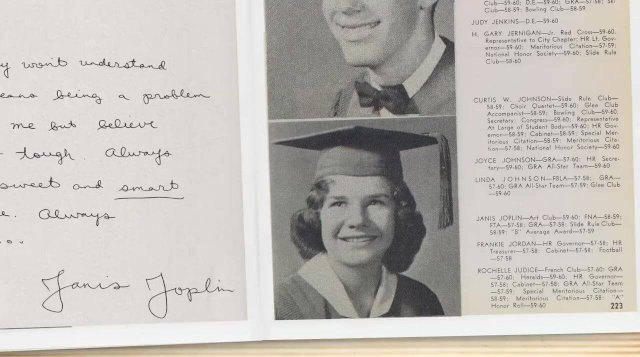 y won't understand
eans being a problem
me but believe
tough. Always
sweet and smart
e. Always
...
Janis Joplin
Club—59-60; D.E.—59-60; GRA—57-58; Sl
Club—58-59; Bowling Club—58-59
JUDY JENKINS—D.E.—59-60
H. GARY JERNIGAN—Jr. Red Cross—59-60,
Representative to City Chapter; HR Lt. Gov-
ernor—59-60; Meritorious Citation—57-59;
National Honor Society—59-60; Slide Rule
Club—58-60
CURTIS W. JOHNSON—Slide Rule Club—
58-59; Choir Quartet—59-60; Glee Club
Accompanist—58-59; Bowling Club—59-60;
Secretary; Congress—59-60; Representative
At Large of Student Body—59-60; HR Gov-
ernor—58-59; Cabinet—58-59; Special Mer-
itorious Citation—58-59; Meritorious Cita-
tion—57-58; National Honor Society—59-60
JOYCE JOHNSON—GRA—57-60; HR Secre-
tary—59-60; GRA All-Star Team—59-60
LINDA JOHNSON—FBLA—57-58; GRA—
57-60; GRA All-Star Team—57-59; Glee Club
—59-60
JANIS JOPLIN—Art Club—59-60; FNA—58-59;
FTA—57-58; GRA—57-58; Slide Rule Club—
58-59; "B" Average Award—57-59
FRANKIE JORDAN—HR Governor—57-58; HR
Treasurer—57-58; Cabinet—57-58; Football
—57-58
ROCHELLE JUDICE—French Club—57-60; GRA
—57-60; Heralds—59-60; HR Governor—
57-58; Cabinet—57-58; GRA All-Star Team
—57-59; Special Meritorious Citation—
58-59; Meritorious Citation—57-58; "A"
Honor Roll—59-60
223